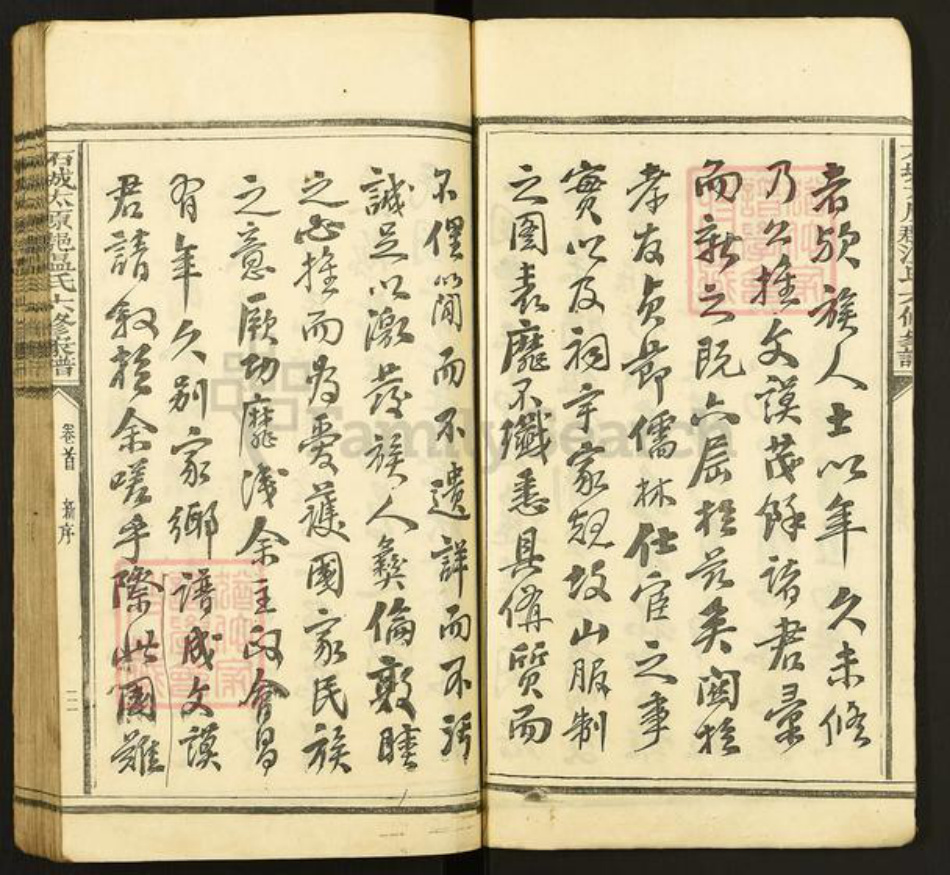 者歟族人士以年久未修
乃公推文謨茂餘諸君彙
而新之既六届於茲矣閱於
孝友貞節儒林仕宦之事
實以及祠宇家規坟山服制
之圖表靡不纖悉具備質而
不俚以簡而不遺詳而不誣
誠足以激發族人彝倫敦睦
之心推而為愛護國家民族
之意厥功靡淺余主政會昌
有年久別家鄉譜成文謨
君請敘於余嗟乎際此國難
石城太原郡温氏六修家譜
卷首
新序
二
FamilySearch